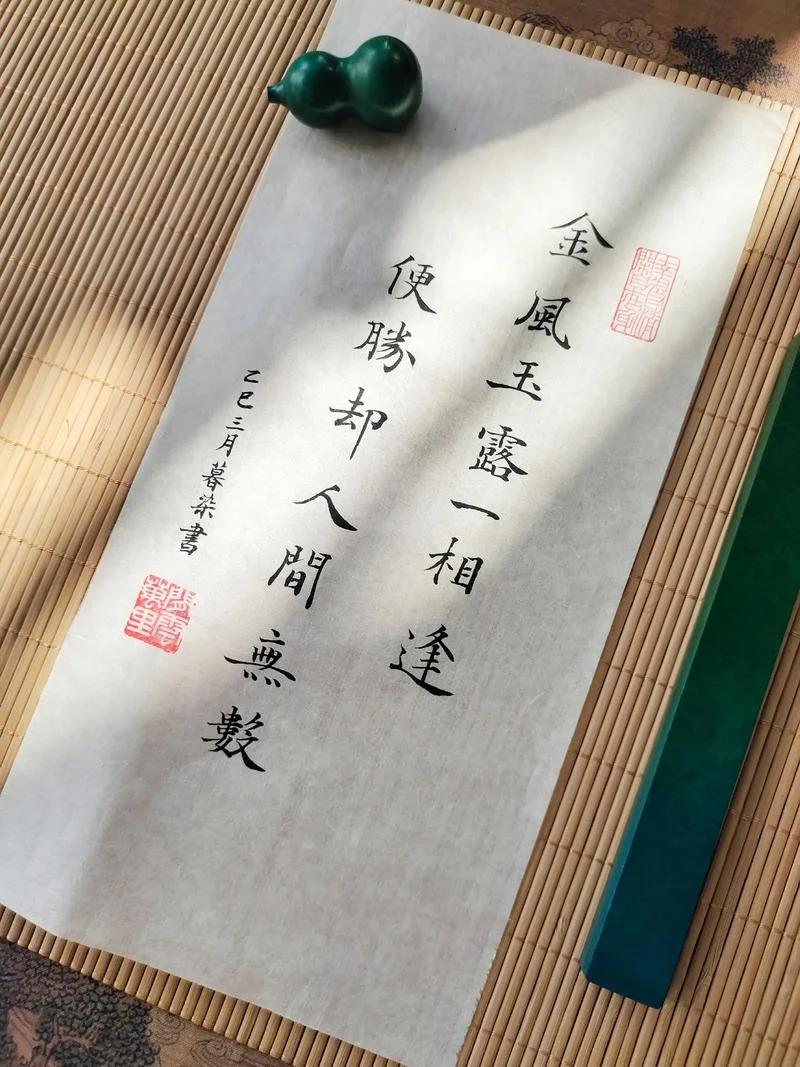 金風玉露一相逢
便勝却人間無數
乙巳三月暮染書